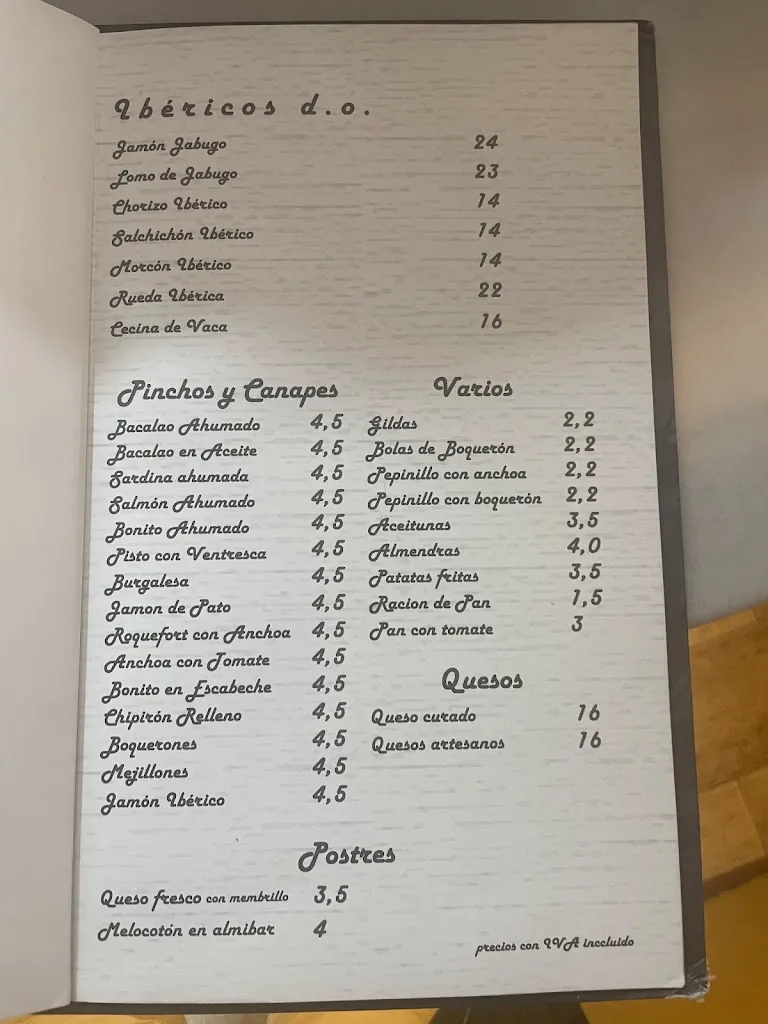 Ibéricos d.o.
Jamón Jabugo 24
Lomo de Jabugo 23
Chorizo Ibérico 14
Salchichón Ibérico 14
Morcón Ibérico 14
Rueda Ibérica 22
Cecina de Vaca 16
Pinchos y Canapes
Bacalao Ahumado 4,5
Bacalao en Aceite 4,5
Sardina ahumada 4,5
Salmón Ahumado 4,5
Bonito Ahumado 4,5
Pisto con Ventresca 4,5
Burgalesa 4,5
Jamon de Pato 4,5
Roquefort con Anchoa 4,5
Anchoa con Tomate 4,5
Bonito en Escabeche 4,5
Chipirón Relleno 4,5
Boquerones 4,5
Mejillones 4,5
Jamón Ibérico 4,5
Varios
Gildas 2,2
Bolas de Boquerón 2,2
Pepinillo con anchoa 2,2
Pepinillo con boquerón 2,2
Aceitunas 3,5
Almendras 4,0
Patatas fritas 3,5
Racion de Pan 1,5
Pan con tomate 3
Quesos
Queso curado 16
Quesos artesanos 16
Postres
Queso fresco con membrillo 3,5
Melocotón en almibar 4
precios con IVA inccluido